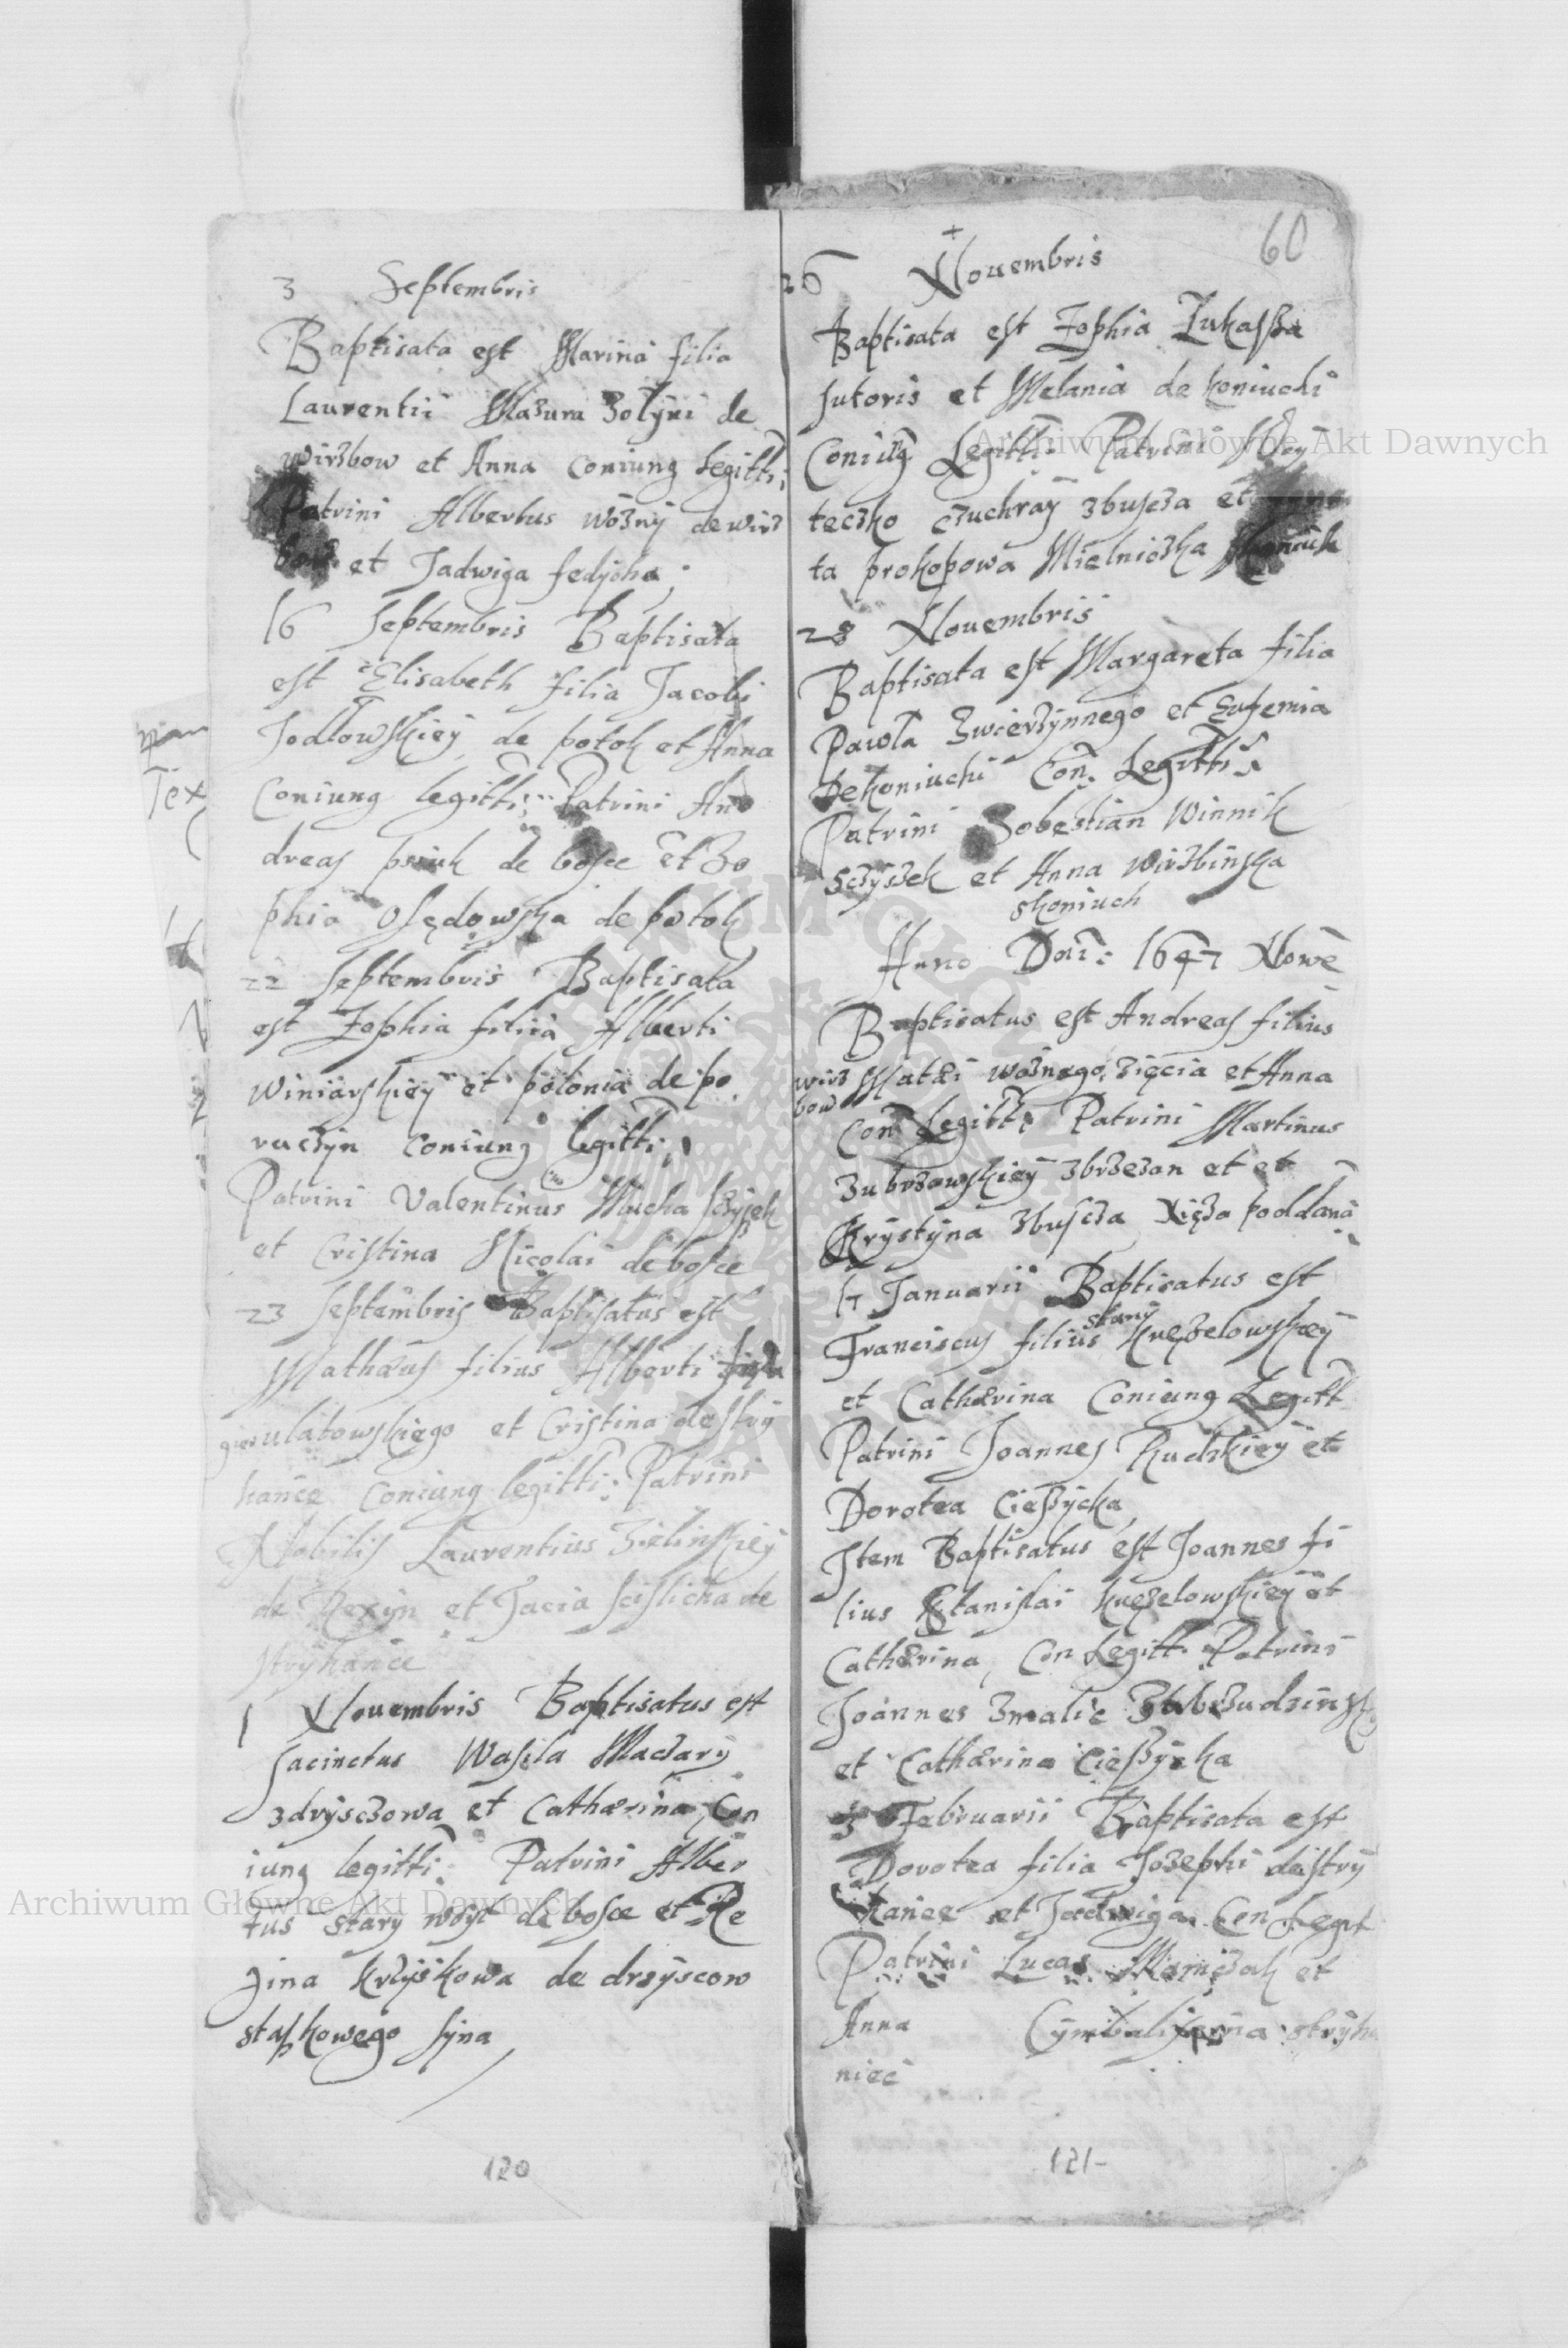 3 Septembris
Baptisata est Marina filia
Laurentii Mazura Zolyni de
wirzbow et Anna Coniung Legitti;
Patrini Albertus wozny de wirz
bow et Jadwiga fedycha;
16 Septembris Baptisata
est Elisabeth filia Jacobi
Jodłowskiey de potok et Anna
Coniung legitti; Patrini An
dreas psiuk de bosce et Zo
phia Osędowska de potok
22 Septembris Baptisata
est Zophia filiia Alberti
winiarskiey et polonia de po
ruczyn Coniung legitti;
Patrini Valentinus Mucha
et Cristina Nicolai de bosce
23 Septembris Baptisatus est
Mathæus filius Alberti
ulatowskiego et Cristina de stry
hance Coniung legitti: Patrini
Nobilis Laurentius Zielinskiey
de Rexyn et Jacia scislicka de
stryhance
1 Nouembris Baptisatus est
Jacinctus Wasila Maczary
zdrysczowa et Catharina Con
iung legitti: Patrini Alber
tus stary woyt de bosce et Re
gina krzyskowa de drzyscow
staskowego syna
120
60
26 Nouembris
Baptisata est Zophia Łukassa
sutoris et Melania de koniuchi
Coniug Legitti: Patrini
teczko czuchray zbuscza et
ta prokopowa Mielniczka
28 Nouembris
Baptisata est Margareta filia
Pawła Zwierzynnego et Eufemia
de koniuchi Con. Legitti:
Patrini Sobestian Winnik
Sczyszek et Anna wirzbinska
skoniuch
Anno Dni: 1647 Nowe
Baptisatus est Andreas filius
wirz Matæi woznego, zięcia et Anna
bow Con Legitt: Patrini Martinus
zubrzowskiey zbrzezan et et
Krystyna zbuscza Xięza poddana
17 Januarii Baptisatus est
stany
Franciscus filius kuezelowskey
et Catharina Coniung Legitt
Patrini Joannes Rudzkiey et
Dorotea Ciessycka
Item Baptisatus est Joannes fi
lius Stanislai kuezelowskiey et
Catharina, Con Legitt. Patrini
Joannes Zmalic
et Catharina Ciessycka
3 Februarii Baptisata est
Dorotea filia Jozephi de stry
hance et Jadwiga Con Legit
Patrini Lucas et
Anna stryha
niec
121
Archiwum Główne Akt Dawnych
Archiwum Główne Akt Dawnych